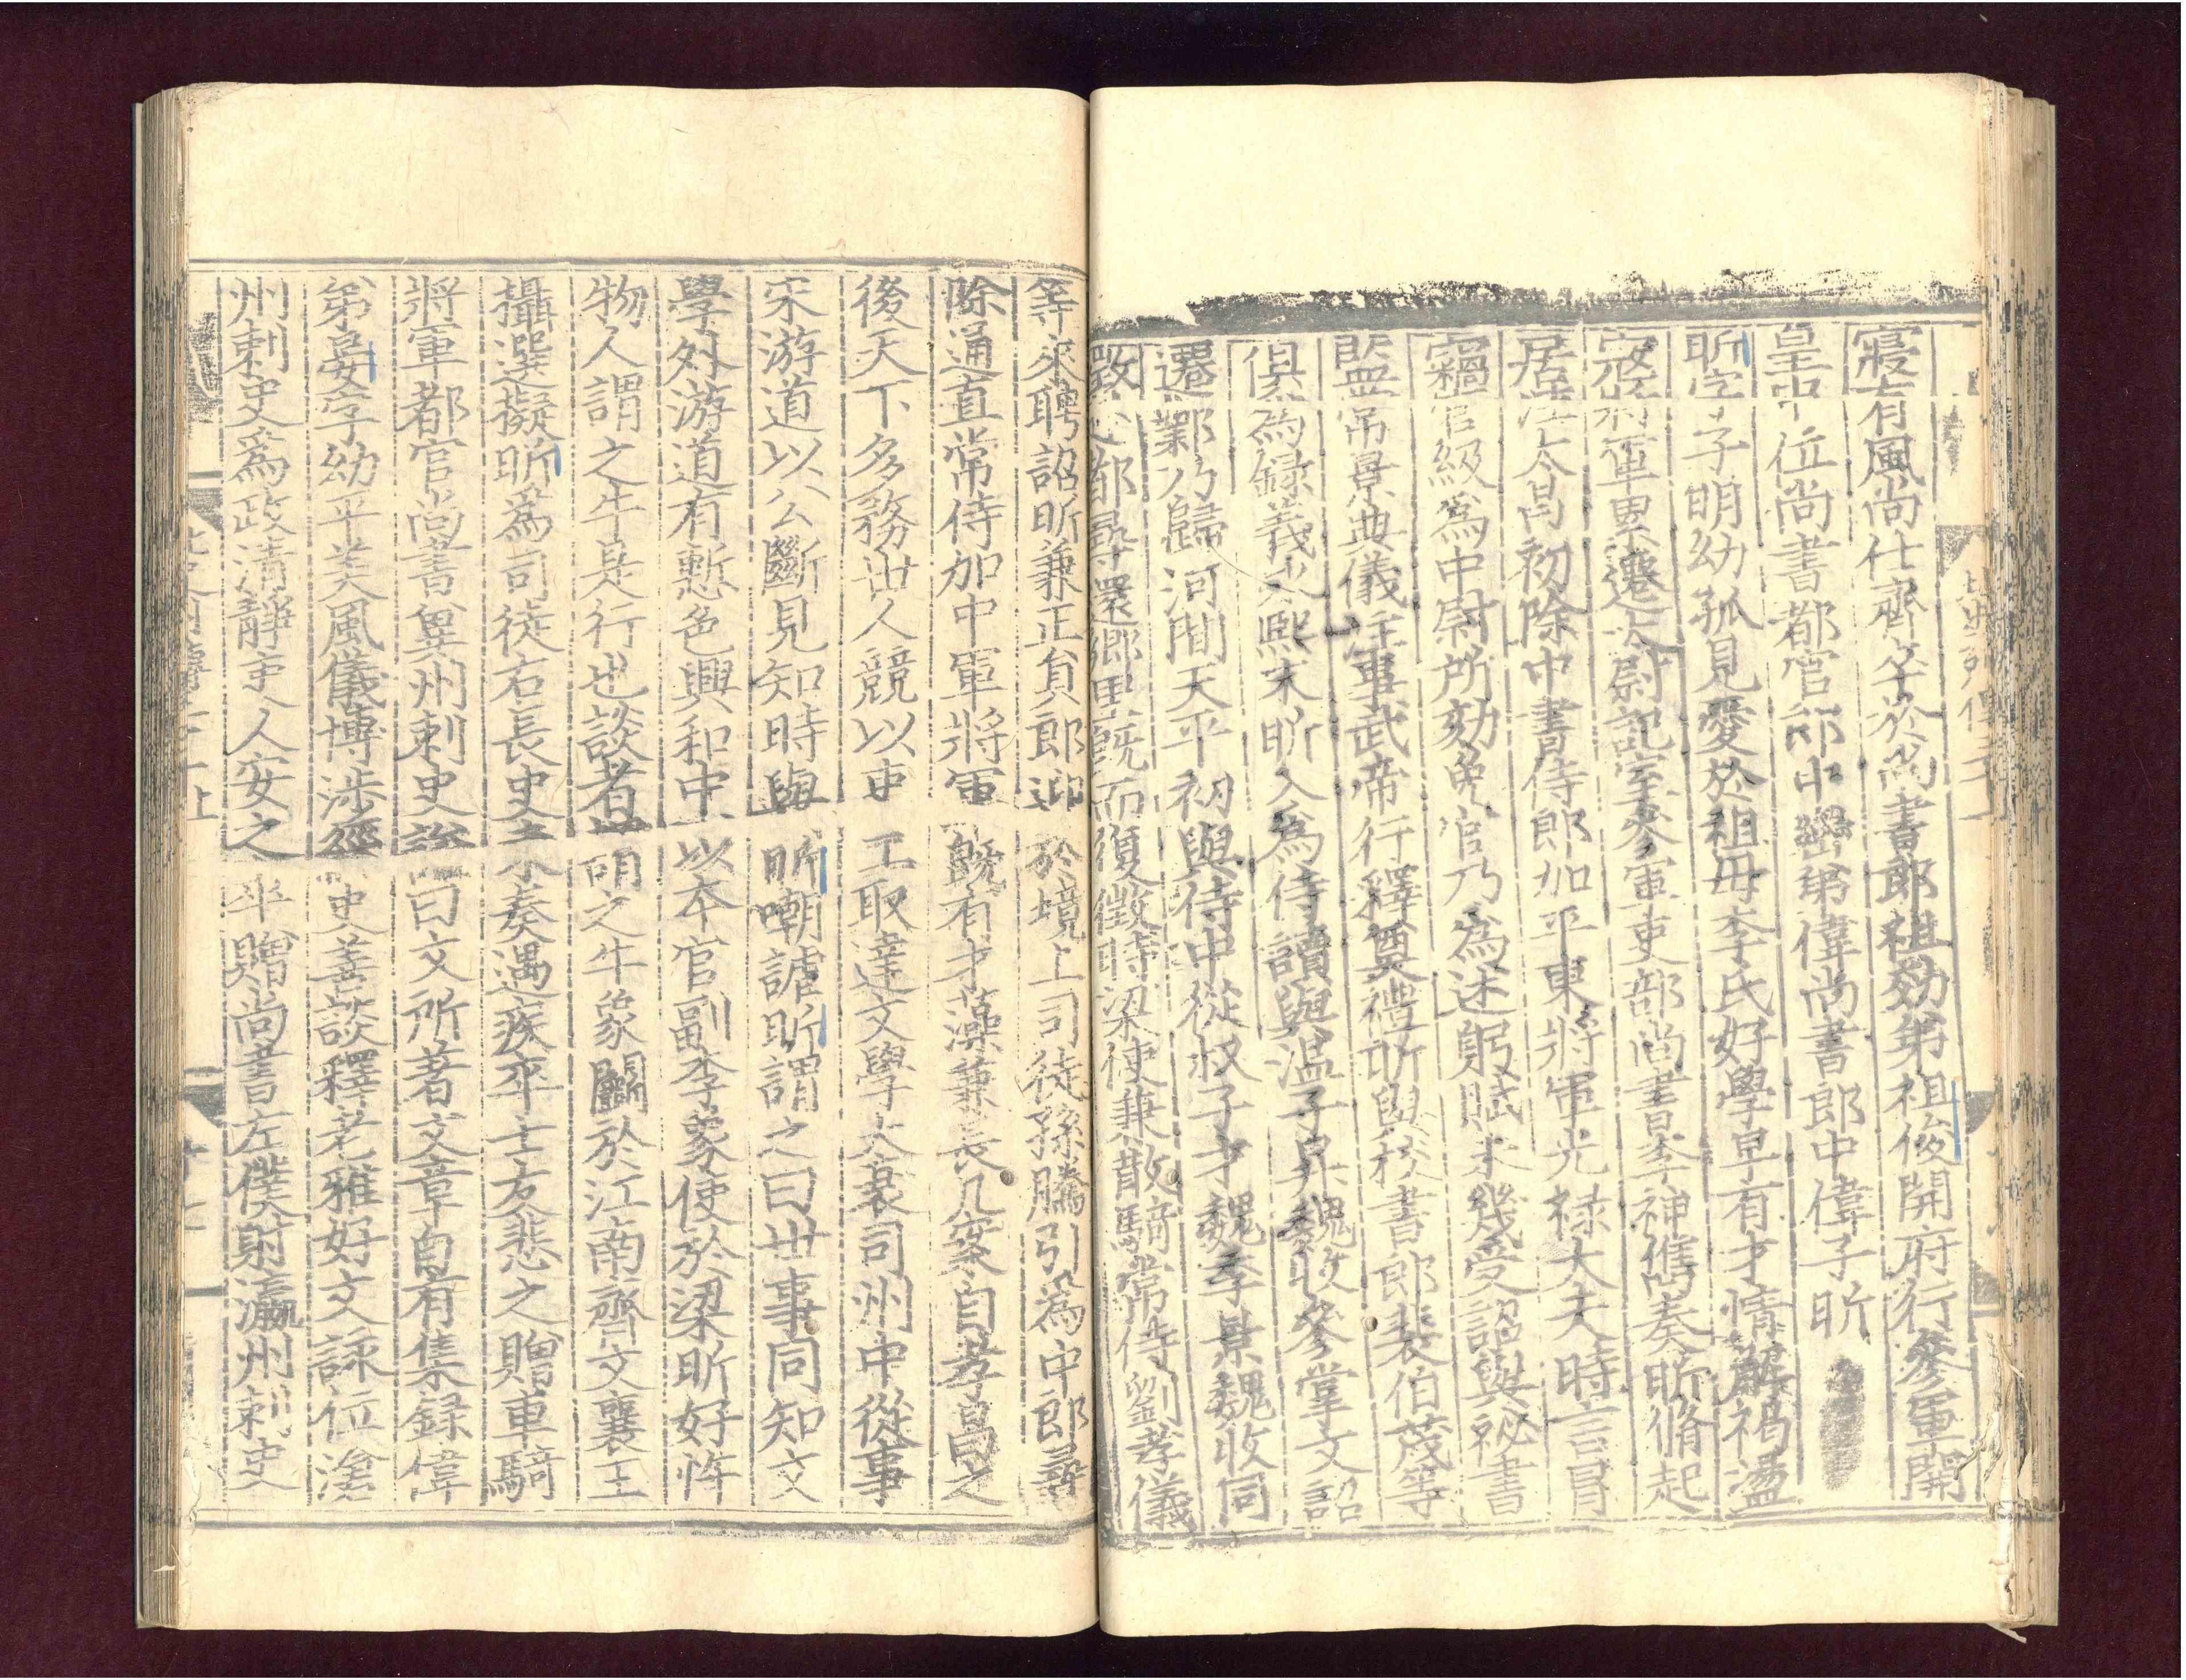 寢有風尚仕齊卒於尚書郎祖効弟祖俊開府行參軍開
皇中位尚書都官郎中巒弟偉尚書郎中偉子昕
昕字子明幼孤見愛於祖母李氏好學早有才情解褐盪
寇將軍累遷太尉記室參軍吏部尚書李神儁奏昕脩起
居注太昌初除中書侍郎加平東將軍光祿大夫時言冒
竊官級爲中尉所劾免官乃爲述躬賦未幾受詔與祕書
監常景典儀注事武帝行釋奠禮昕與校書郎裴伯茂等
俱為録義永熙末昕入爲侍讀與温子昇魏收參掌文詔
遷鄴乃歸河間天平初與侍中從叔子才魏季景魏收同
徵赴都尋還鄉里既而復徵時梁使兼散騎常侍劉孝儀
等來聘詔昕兼正員郎迎於境上司徒孫騰引為中郎尋
除通直常侍加中軍將軍既有才藻兼長几案自孝昌之
後天下多務世人競以吏工取達文學大衰司州中從事
宋游道以公斷見知時與昕嘲謔昕謂之曰世事同知文
學外游道有慙色興和中以本官副李象使於梁昕好忤
物人謂之牛是行也談者謂之牛象鬭於江南齊文襄王
攝選擬昕爲司徒右長史未奏遇疾卒士友悲之贈車騎
將軍都官尚書兾州刺史諡曰文所著文章自有集録偉
弟晏字幼平美風儀博涉經史善談釋老雅好文詠位滄
州刺史爲政清靜吏人安之卒贈尚書左僕射瀛州刺史